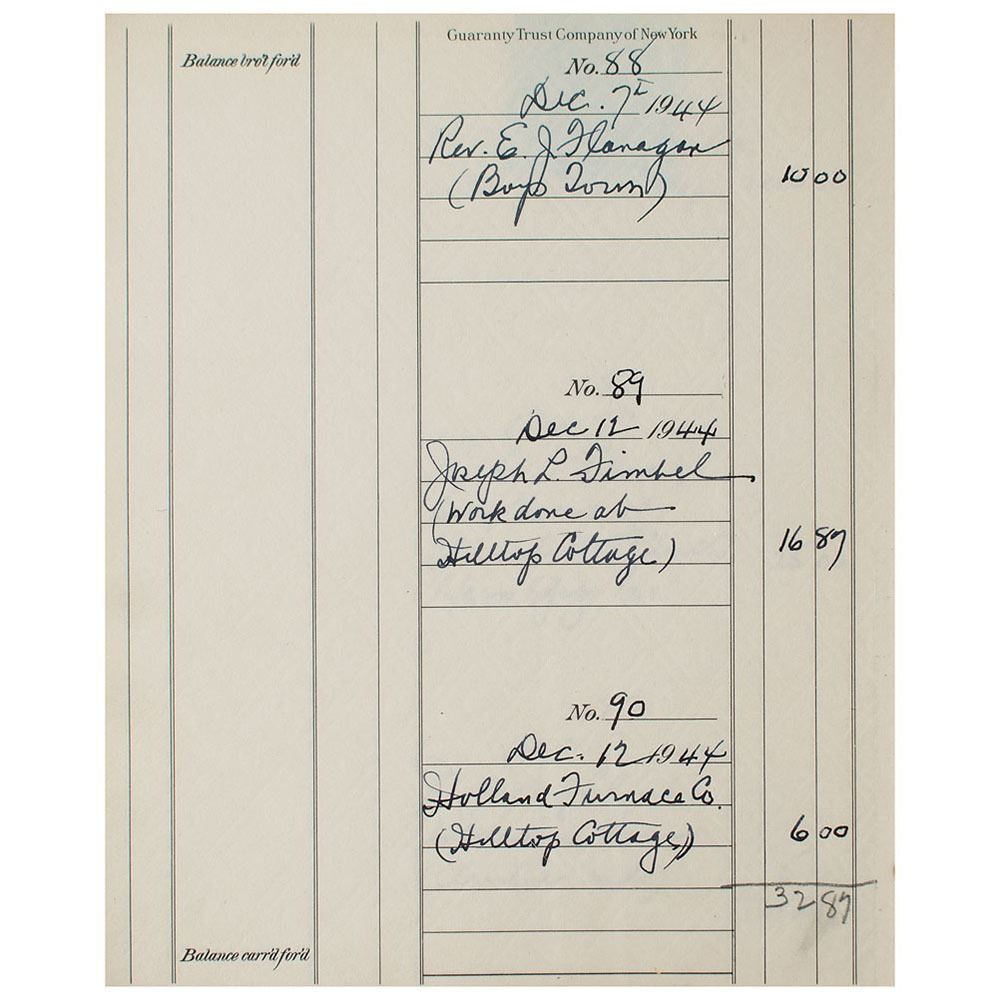 Guaranty Trust Company of New York
Balance bro't for'd
No. 88
Dec. 7th 1944
Rev. E. J. Flanagan
(Boys Town)
10 00
No. 89
Dec 12 1944
Joseph L. Timbel
(Work done at
Hilltop Cottage)
16 87
No. 90
Dec. 12 1944
Holland Furnace Co.
(Hilltop Cottage)
6 00
32 87
Balance carr'd for'd